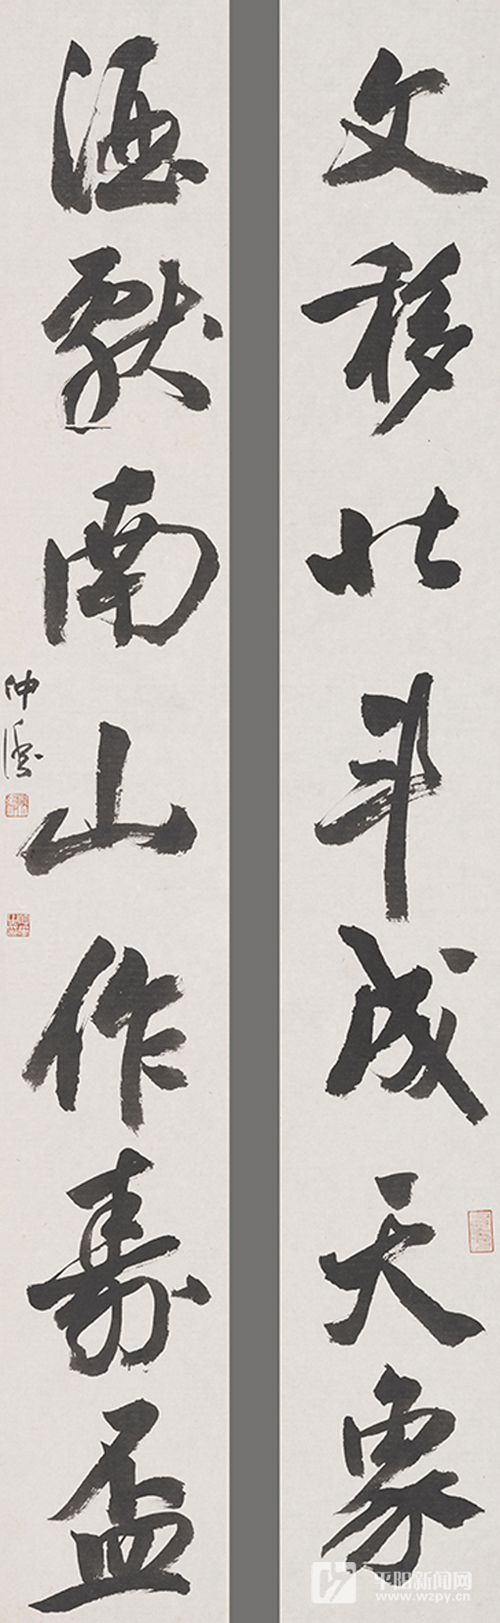 文移北斗成天象
酒献南山作寿盃
平阳新闻网
www.wzpy.cn